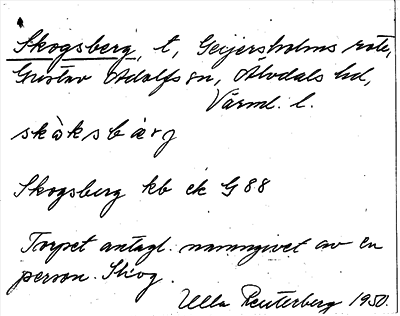 Skogsberg, t, Geijersholms rote,
Gustav Adolfs sn, Älvdals hd,
Värml. l.
skòksbær j
Skogsberg kb ek G 88
Torpet antagl. namngivet av en
person Skog.
Ulla Reuterberg 1950.